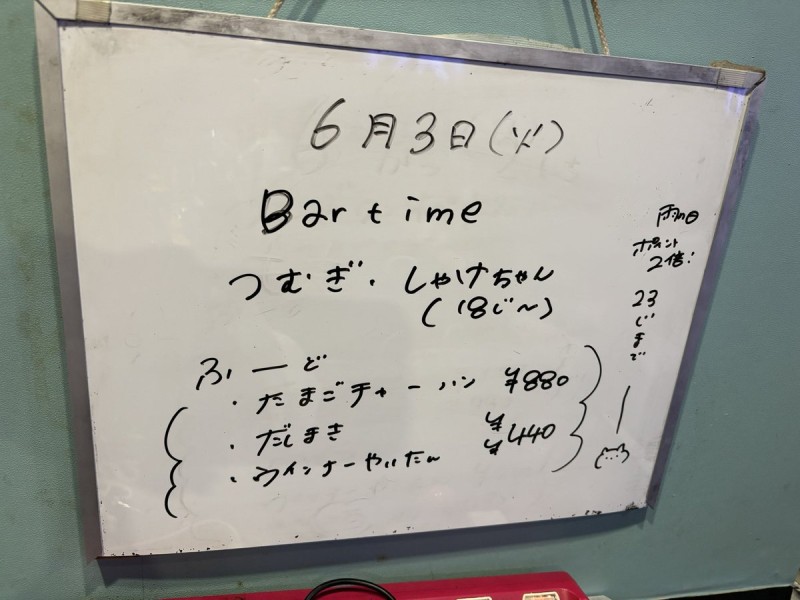 6月3日(火)
Bar time
つむぎ・しゃけちゃん
(18じ〜)
ふーど
・たまごチャーハン ¥880
・だしまき ¥440
・ウインナーやいたー ¥
雨の日
ポイント
2倍!
23じまで